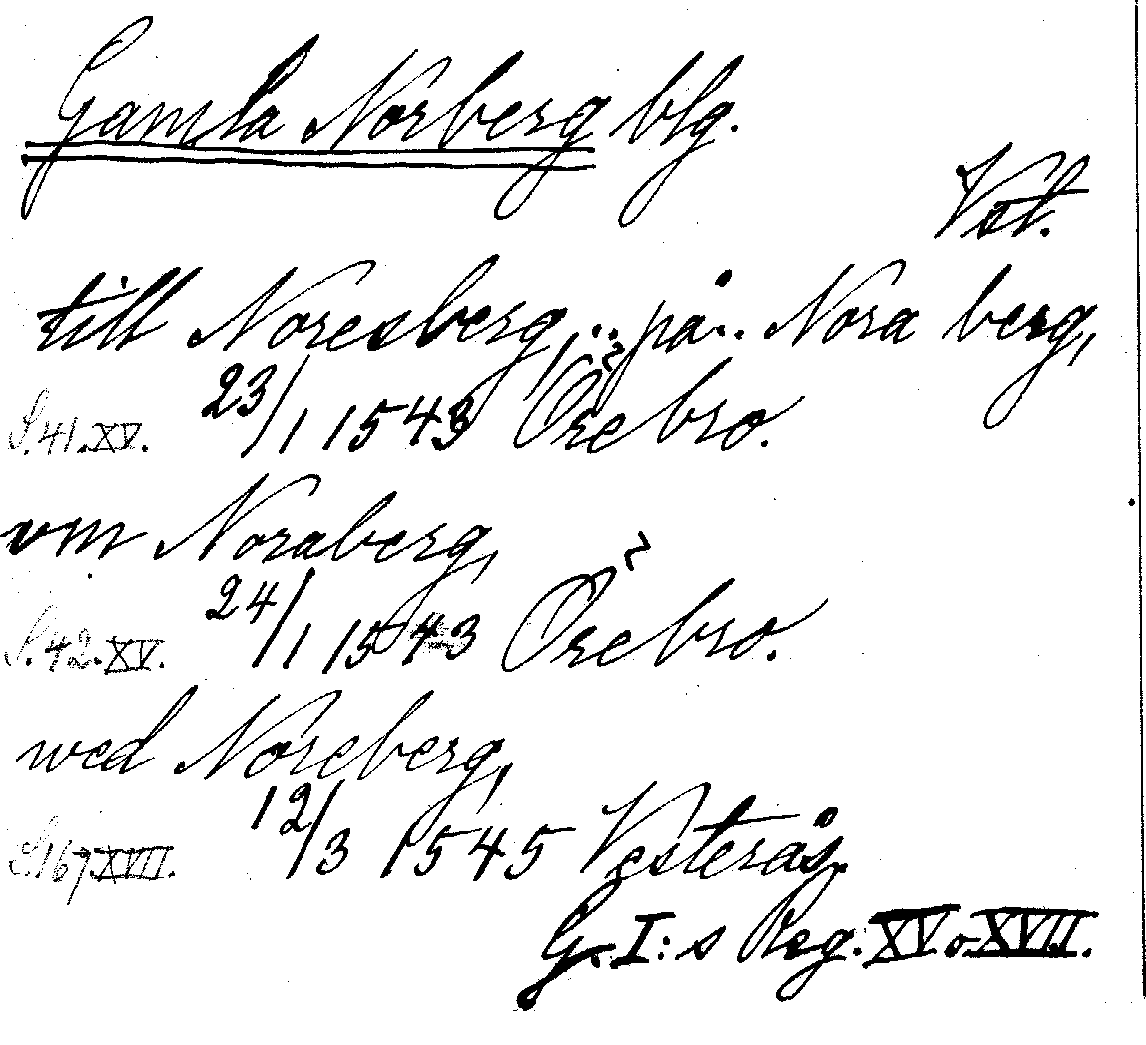 Gamla Norberg blg.
Vstl.
till Noresberg, .. på .. Nora berg,
S.41.XV. 23/1 1543 Örebro.
vm Noraberg,
S.42.XV. 24/1 1543 Örebro.
wed Noreberg,
S.167.XVII. 12/3 1545 Vesterås.
G. I:s Reg. XV o XVII.